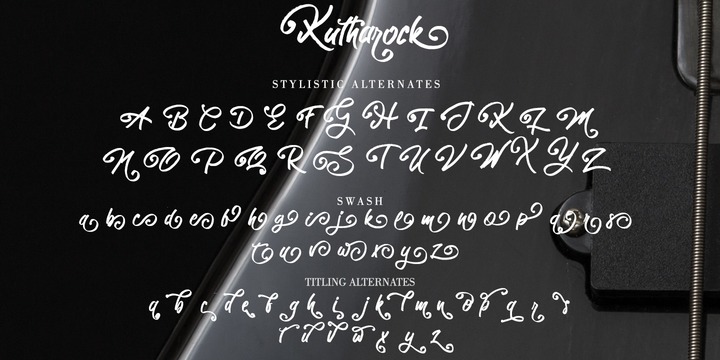 Kutharock
STYLISTIC ALTERNATES
A B C D E F G H I J K L M
N O P Q R S T U V W X Y Z
SWASH
a b c d e f g h g i j k l m n o p q r s
t u v w x y z
TITLING ALTERNATES
a b c d e f g h i j k l m n o p q r s
t u v w x y z